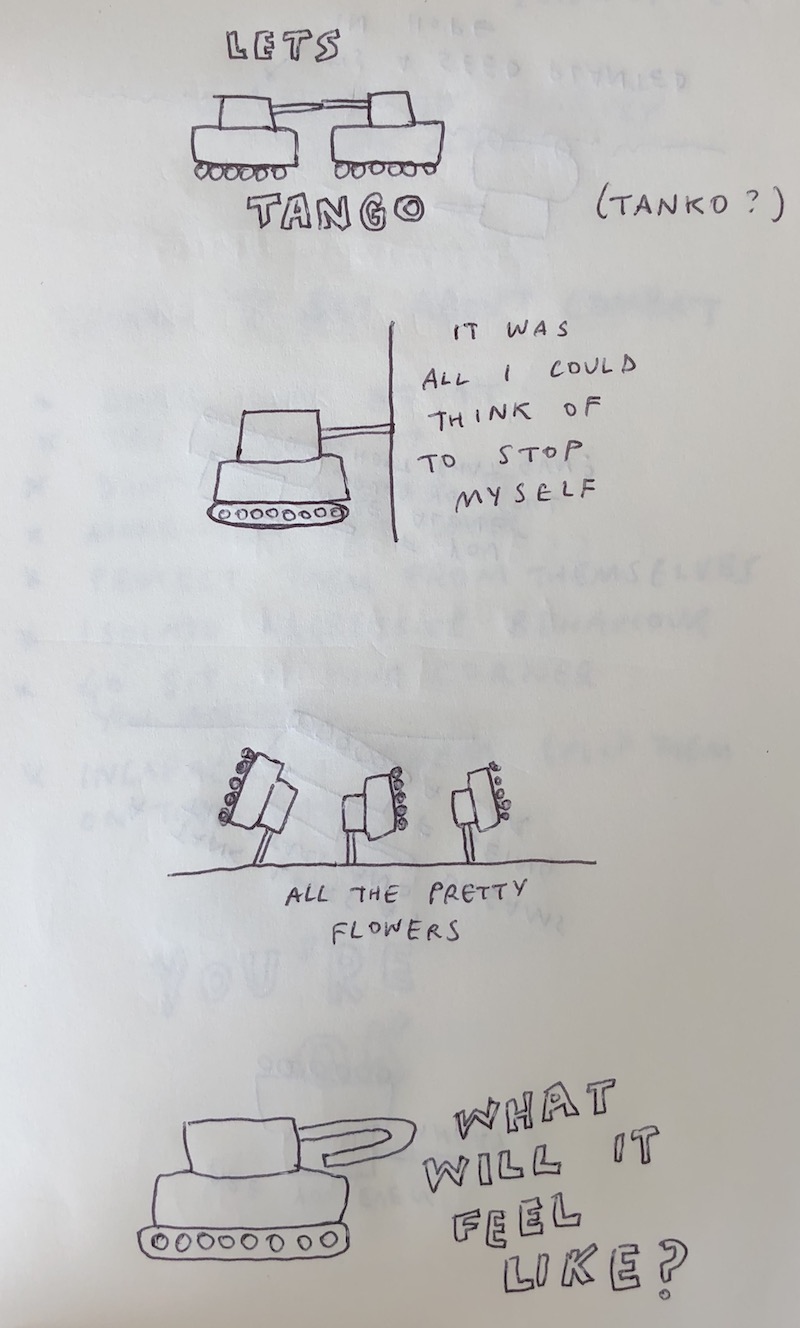 LETS
TANGO
(TANKO?)
IT WAS
ALL I COULD
THINK OF
TO STOP
MYSELF
ALL THE PRETTY
FLOWERS
WHAT
WILL IT
FEEL
LIKE?